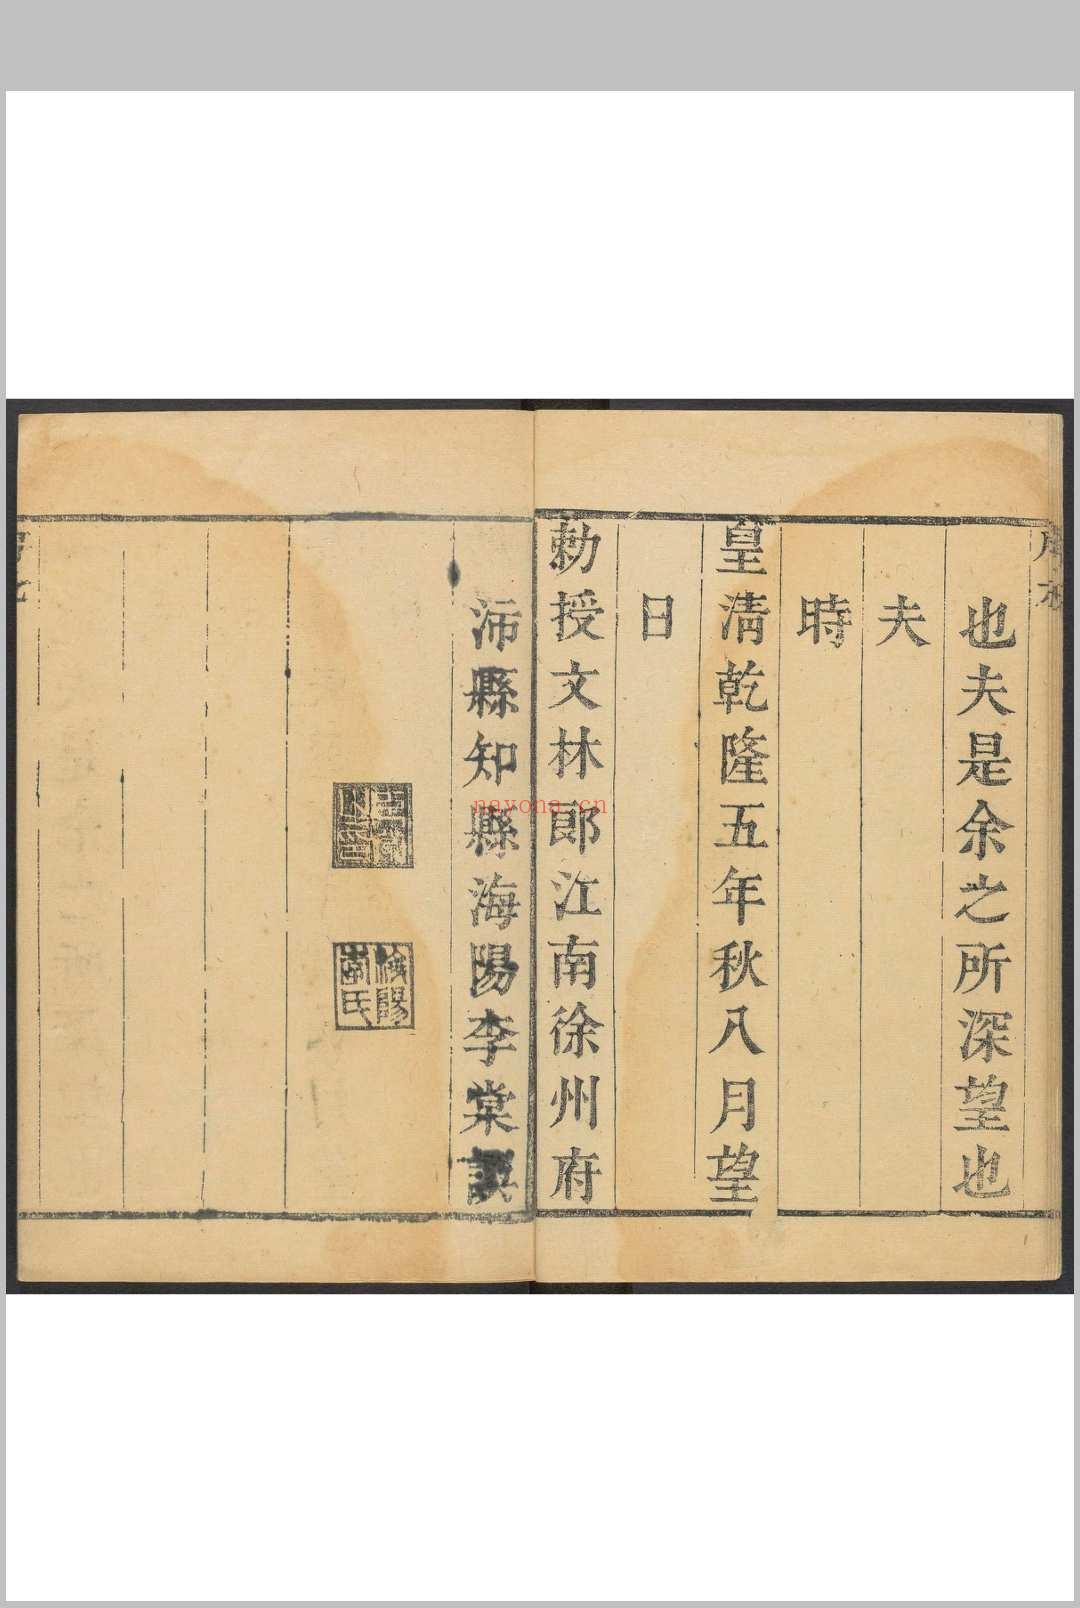 也夫是余之所深望也
夫
時
皇淸乾隆五年秋八月望
日
勅授文林郞江南徐州府
沛縣知縣海陽李棠譔
海陽
李氏
nayona.cn